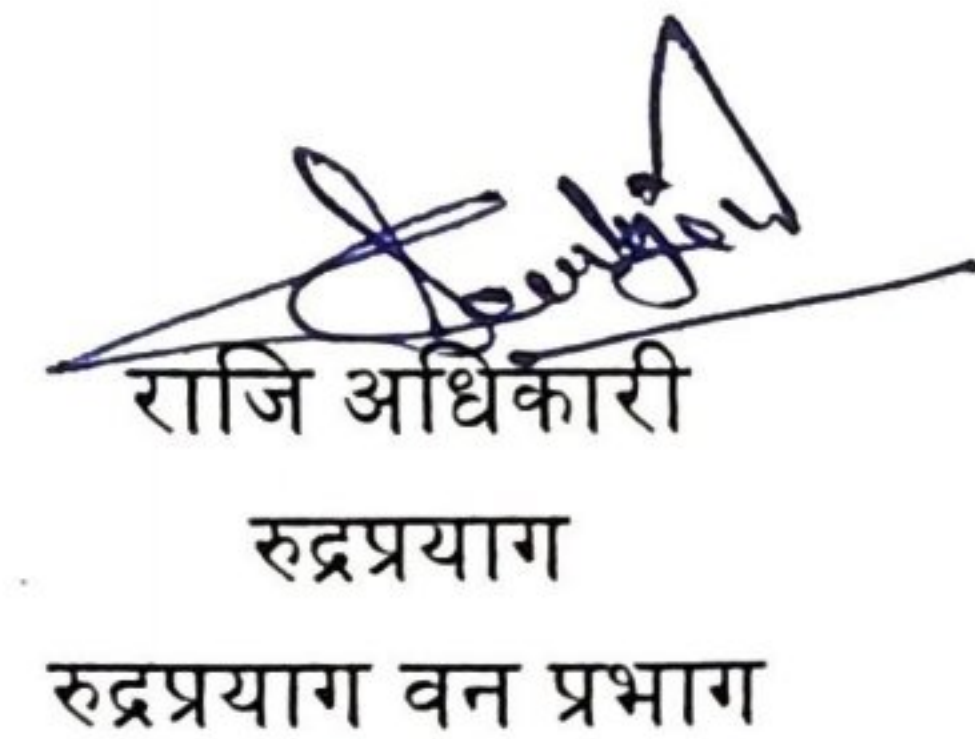 राजि अधिकारी
रुद्रप्रयाग
रुद्रप्रयाग वन प्रभाग